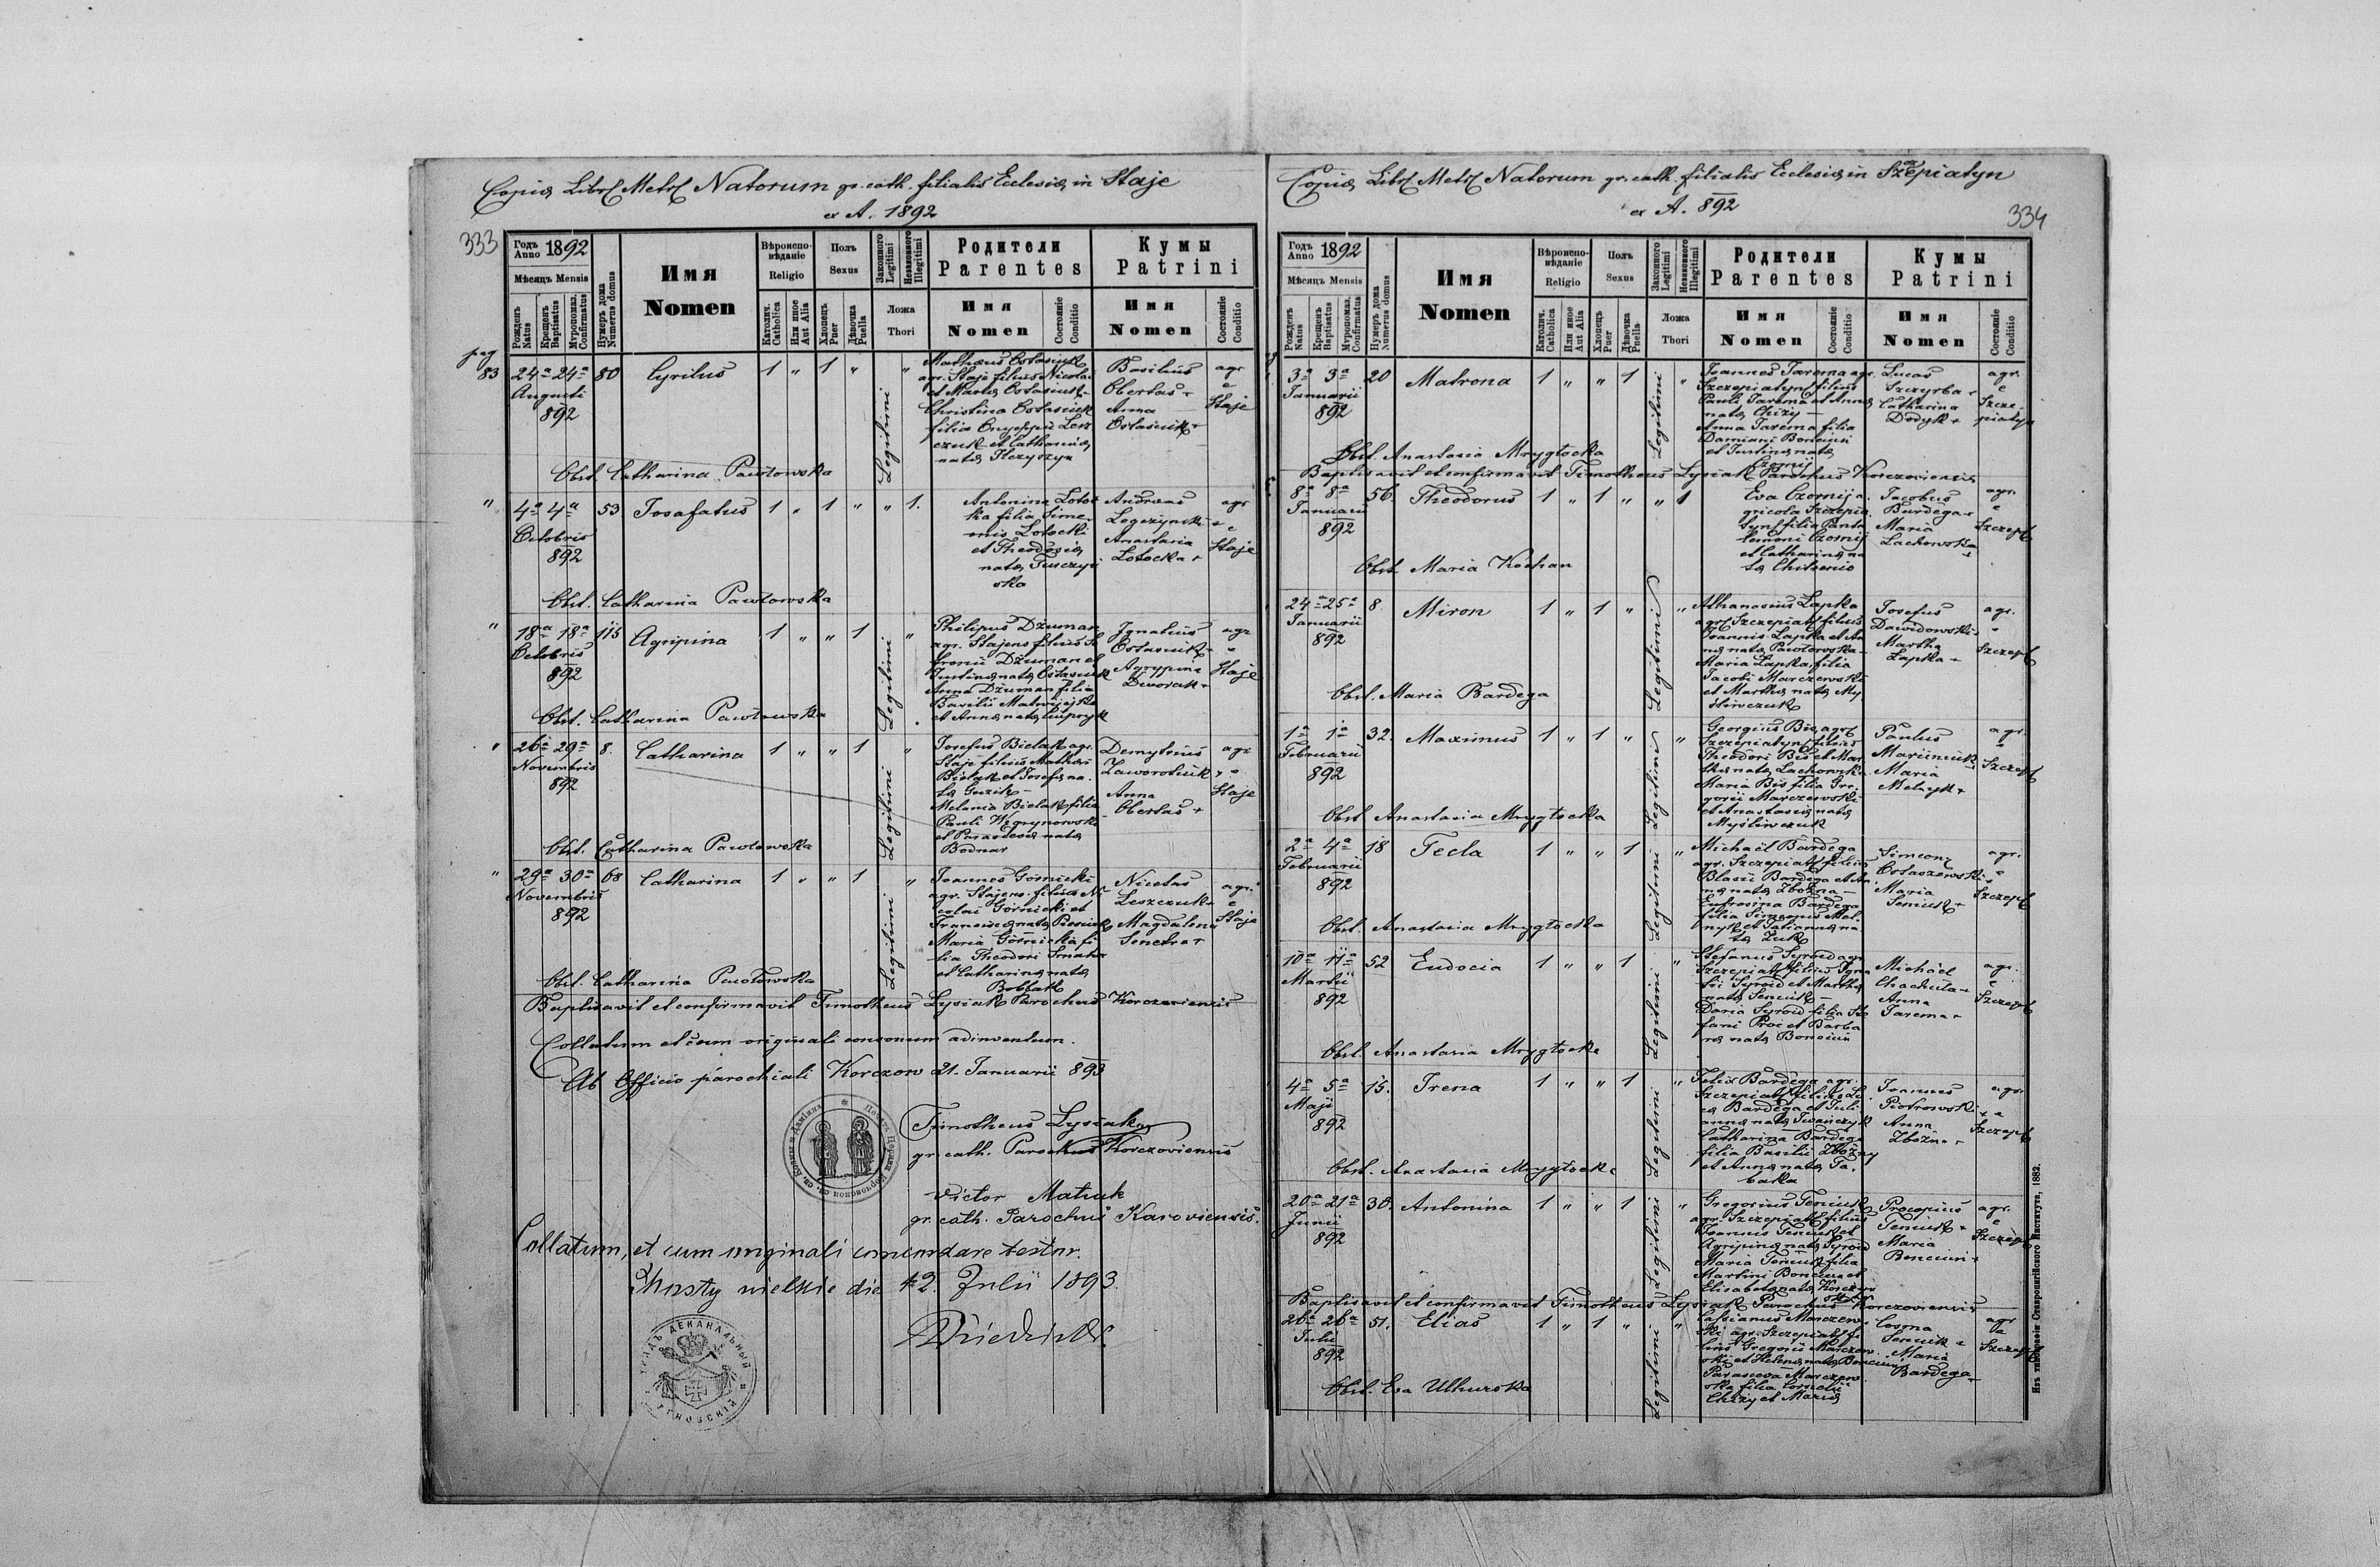 Copia Libri Metr Natorum gr. cath. filialis Ecclesiæ in Staje
ex A. 1892
333
Годъ Anno 1892
Мѣсяцъ Mensis
Рожденъ Natus
Крещенъ Baptisatus
Мѵропомаз. Confirmatus
Нумеръ дома Numerus domus
Имя
Nomen
Вѣроиспо-
вѣданіе
Religio
Католич. Catholica
Или иное Aut Alia
Полъ
Sexus
Хлопецъ Puer
Дѣвочка Puella
Законного Legitimi
Незаконного Illegitimi
Ложа
Thori
Родители
Parentes
Имя
Nomen
Состояніе Conditio
Кумы
Patrini
Имя
Nomen
Состояніе Conditio
pag
83
24a 24a 80 Cyrilus 1 " 1 " "
Augusti
892
Legitimi
Mathæus Ostasiuk
agr. Staje filius Nicolai
et Mariæ Ostasiuk
Christina Ostasiuk
filia Onyphrii Lesz
czuk et Catharinæ
natæ
Basilius
Obertas +
Anna
Ostasiuk +
agr
e
Staje
Obst. Catharina Pawłowska
" 4a 4a 53 Josafatus 1 " 1 " " 1.
Octobris
892
Antonina Łotoc
ka filia Sime-
onis Łotocki
et Theodosiæ
natæ
ska
Andreas
Anastasia
Łotocka +
agr
e
Staje
Obst. Catharina Pawłowska
" 18a 18a 115 Agripina 1 " " 1 "
Octobris
892
Legitimi
Philipus Dżuman
agr. Stajens filius
Dżuman et
Justinæ natæ Ostasiuk
Anna Dżuman filia
Basilii
et Annæ natæ
Ignatius
Ostasiuk
Agrypina
Dworak +
agr
e
Staje
Obst. Catharina Pawłowska
" 26a 29a 8. Catharina 1 " " 1 "
Novembris
892
Legitimi
Josefus Bielak agr.
Staje filius Mathæi
Bielak et Josefæ na-
tæ Guzik
Melania Bielak filia
Pauli Węgrynowski
et Parascevæ natæ
Bodnar
Demytrius
Zaworotiuk +
Anna
Obertas +
agr
e
Staje
Obst. Catharina Pawłowska
" 29a 30a 68 Catharina 1 " " 1 "
Novembris
892
Legitimi
Joannes Górnicki
agr. Stajens. filius Ni-
colai Górnicki et
Franciscæ natæ
Maria Górnicka fi-
lia Theodori
et Catharinæ natæ
Nicetas
Leszczuk
Magdalena
agr.
e
Staje
Obst. Catharina Pawłowska
Baptisavit et confirmavit Timotheus Lysiak Parochus Korczoviensis
Collatum et cum originali consonum adinventum.
Ab Officio parochiali Korczow 21. Januarii 893
Timotheus Lysiak
gr. cath. Parochus Korczoviensis
Victor Matiuk
gr. cath. Parochus Karoviensis.
Collatum, et cum originali concordare testor.
Chusty wielkie die 12. Julii 1893.
Copia Libri Metr Natorum gr. cath. filialis Ecclesiæ in Szczepiatyn
ex A. 892
334
Годъ Anno 1892
Мѣсяцъ Mensis
Рожденъ Natus
Крещенъ Baptisatus
Мѵропомаз. Confirmatus
Нумеръ дома Numerus domus
Имя
Nomen
Вѣроиспо-
вѣданіе
Religio
Католич. Catholica
Или иное Aut Alia
Полъ
Sexus
Хлопецъ Puer
Дѣвочка Puella
Законного Legitimi
Незаконного Illegitimi
Ложа
Thori
Родители
Parentes
Имя
Nomen
Состояніе Conditio
Кумы
Patrini
Имя
Nomen
Состояніе Conditio
3a 3a 20 Matrona 1 " " 1 "
Januarii
892
Legitimi
Joannes Jarema agr.
Szczepiatyn filius
Pauli Jarema et Annæ
natæ Chiży
Anna Jarema filia
Damiani Bonciuri
et Justinæ natæ
Czornij
Lucas
Szczyrba +
Catharina
Dodyk +
agr.
e
Szcze-
piatyn
Obst. Anastasia Mrygłocka
Baptisavit et confirmavit Timotheus Lysiak Parochus Korczoviensis
8a 8a 56. Theodorus 1 " 1 " " 1
Januarii
892
Eva Czornij a-
gricola Szczepia-
tyn filia Panta-
lemoni Czornij
et Catharinæ na
tæ
Jacobus
Bardega +
Maria
Lachowska
+
agr.
e
Szczept
Obst. Maria Kochan
24a 25a 8. Miron 1 " 1 " "
Januarii
892
Legitimi
Athanasius Łapka
agr. Szczepiat filius
Joannis Łapka et An
næ natæ Pawłowska
Maria Łapka filia
Jacobi Marczewski
et Marthæ natæ My-
śliwczuk
Josefus
Dawidowski
Martha
Łapka +
agr.
e
Szczept
Obst. Maria Bardega
1a 1a 32. Maximus 1 " 1 " "
Februarii
892
Legitimi
Georgius Bis, agr.
Szczepiatyn filius
Theodori Bis et Mar-
thæ natæ Lachowska
Maria Bis filia Gre-
gorii Marczewski
et Anastasiæ natæ
Myśliwczuk
Paulus
Maria
Melnyk +
agr.
e
Szczept
Obst Anastasia Mrygłocka
2a 4a 18 Tecla 1 " " 1 "
Februarii
892
Legitimi
Michaël Bardega
agr. Szczepiat filius
Blasii Bardega et An
næ natæ Zbożna
Eufrosina Bardega
filia Simeonis Mel-
nyk et Tatiannæ na
tæ Żuk
Simeon
Ostaszewski
Maria
Seniuk +
agr.
e
Szczept
Obst. Anastasia Mrygłocka
10a 11a 52 Eudocia 1 " " 1 "
Martii
892
Legitimi
Stefanus Syroid agr
Szczepiat filius Igna
tii Syroid et Marthæ
natæ Seniuk
Daria Syroid filia Ste
fani Proc et Barba
ræ natæ Bonciuri
Michaël
Anna
Jarema +
agr.
e
Szczept
Obst. Anastasia Mrygłocka
4a 5a 15. Irena 1 " " 1 "
Maji
892
Legitimi
Felix Bardega agr.
Szczepiat filius Lu
cæ Bardega et Juli-
annæ natæ Iwańczyk
Catharina Bardega
filia Basilii Zbożny
et Annæ natæ Ta-
baka
Joannes
Piotrowski +
Anna
Zbożna +
agr.
e
Szczept
Obst. Anastasia Mrygłocka
20a 21a 30. Antonina 1 " " 1 "
Junii
892
Legitimi
Gregorius Seniuk
agr. Szczepiat filius
Joannis Seniuk et
Agripinæ natæ Syroid
Maria Seniuk filia
Martini Bonciuri et
Elisabetæ natæ
Procopius
Seniuk +
Maria
Bonciuri +
agr.
e
Szczept
Baptisavit et confirmavit Timotheus Lysiak Parochus Korczoviensis
26a 26a 51. Elias 1 " 1 " "
Julii
892
Legitimi
Cassianus Marczew-
ski agr. Szczepiat fi-
lius Gregorii Marczew-
ski et Helenæ natæ Bonciuri
Parasceva Marczew-
ska filia Cornelii
Chiży et Mariæ
Cosma
Seniuk +
Maria
Bardega
agr
e
Szczept
Obst. Eva Uhurska
Изъ типографіи Ставропигійского Института, 1882.